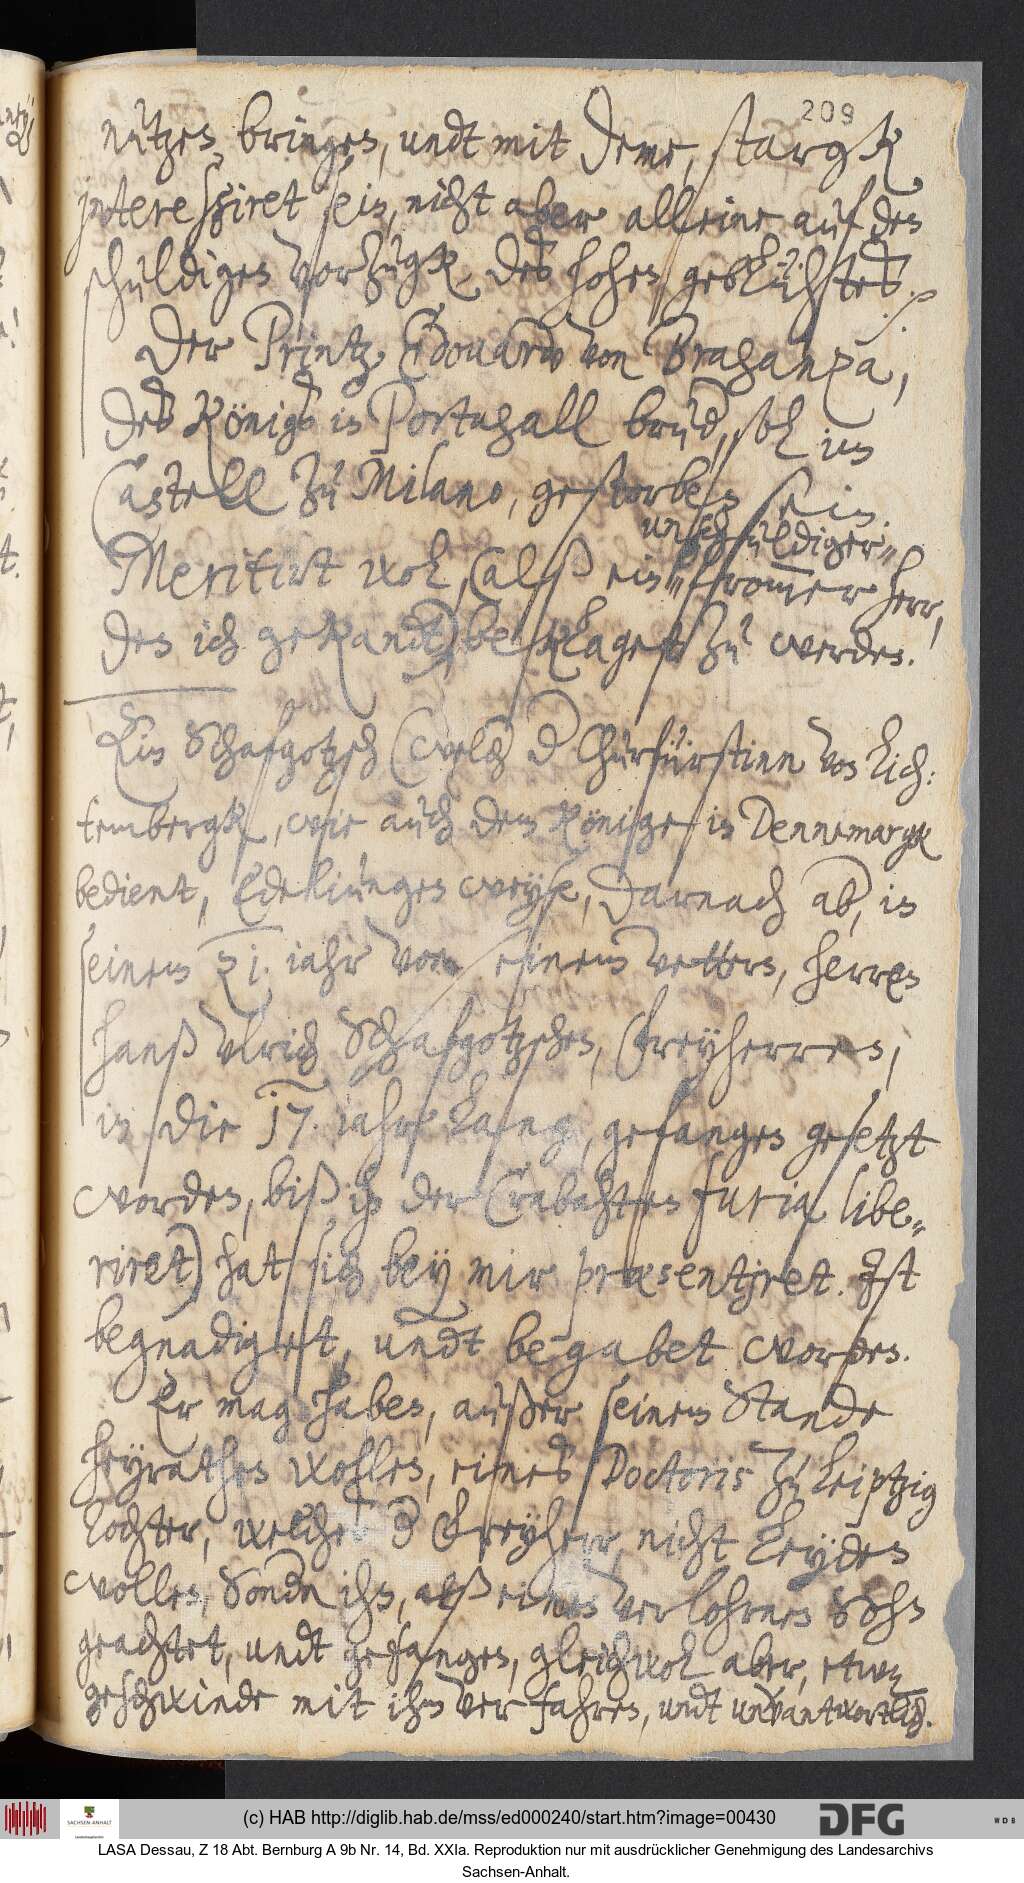 209
nutzes bringen, undt mit deme, stargk
interessiret sein, nicht aber alleine auf den
schuldigen vorzugk, des hohen geblühtes. 
Der Printz Edouard von Braganza,
des Königs in Portugall brud, sol im
Castell zu Milano, gestorben sein.
unschuldiger
Meritirt wol, (alß ein frommer herr,
den ich gekandt) beklaget zu werden.
Ein Schafgotzsch (welch d Churfürstinn von Lich:
tembergk, wie auch dem Könige in Dennemargk
bedient, Edeliunges weyse, darnach ab, in
seinem 21. iahr von seinem vettern, herren
Hanß Ulrich Schafgotzschen, Freyherren,
in die 17. iahr lang, gefangen gesetzt
worden, biß ihn der Crabahten furia libe„
riret) hat sich bey mir præsentiret. Ist
begnadiget, undt begabet worden.
Er mag haben, außer seinem Stande
heyrathen wollen, eines Doctoris zu Leiptzig
Tochter, welches d Freyherr nicht leyden
wollen, Sondn ihn, alß einen verlohrnen Sohn
geachtet, undt gefangen, gleichwol aber, etwaß
geschwinde mit ihm verfahren, undt unvantwortlich.
(c) HAB http://diglib.hab.de/mss/ed000240/start.htm?image=00430
SACHSEN-ANHALT
DFG
WDB
LASA Dessau, Z 18 Abt. Bernburg A 9b Nr. 14, Bd. XXIa. Reproduktion nur mit ausdrücklicher Genehmigung des Landesarchivs
Sachsen-Anhalt.